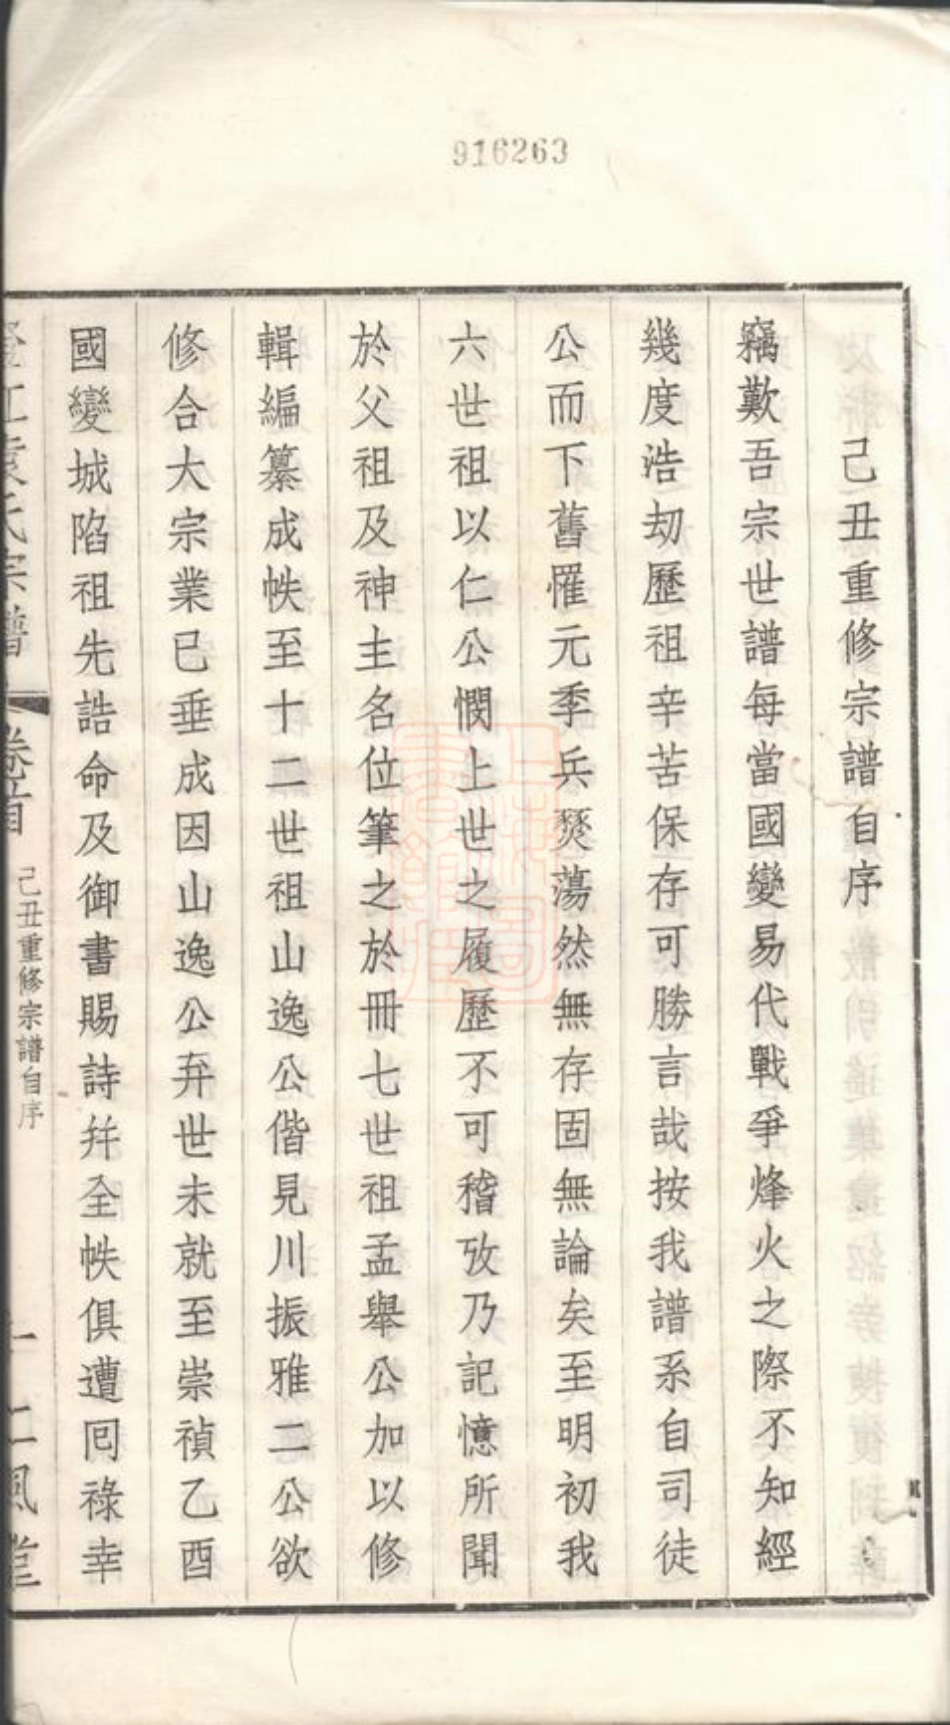 916263
己丑重修宗譜自序
竊歎吾宗世譜每當國變易代戰爭烽火之際不知經
幾度浩劫歷祖辛苦保存可勝言哉按我譜系自司徒
公而下舊罹元季兵燹蕩然無存固無論矣至明初我
六世祖以仁公憫上世之履歷不可稽攷乃記憶所聞
於父祖及神主名位筆之於冊七世祖孟舉公加以修
輯編纂成帙至十二世祖山逸公偕見川振雅二公欲
修合大宗業已垂成因山逸公弃世未就至崇禎乙酉
國變城陷祖先誥命及御書賜詩并全帙俱遭囘祿幸
江袁氏宗譜
卷首
己丑重修宗譜自序
一
二風堂